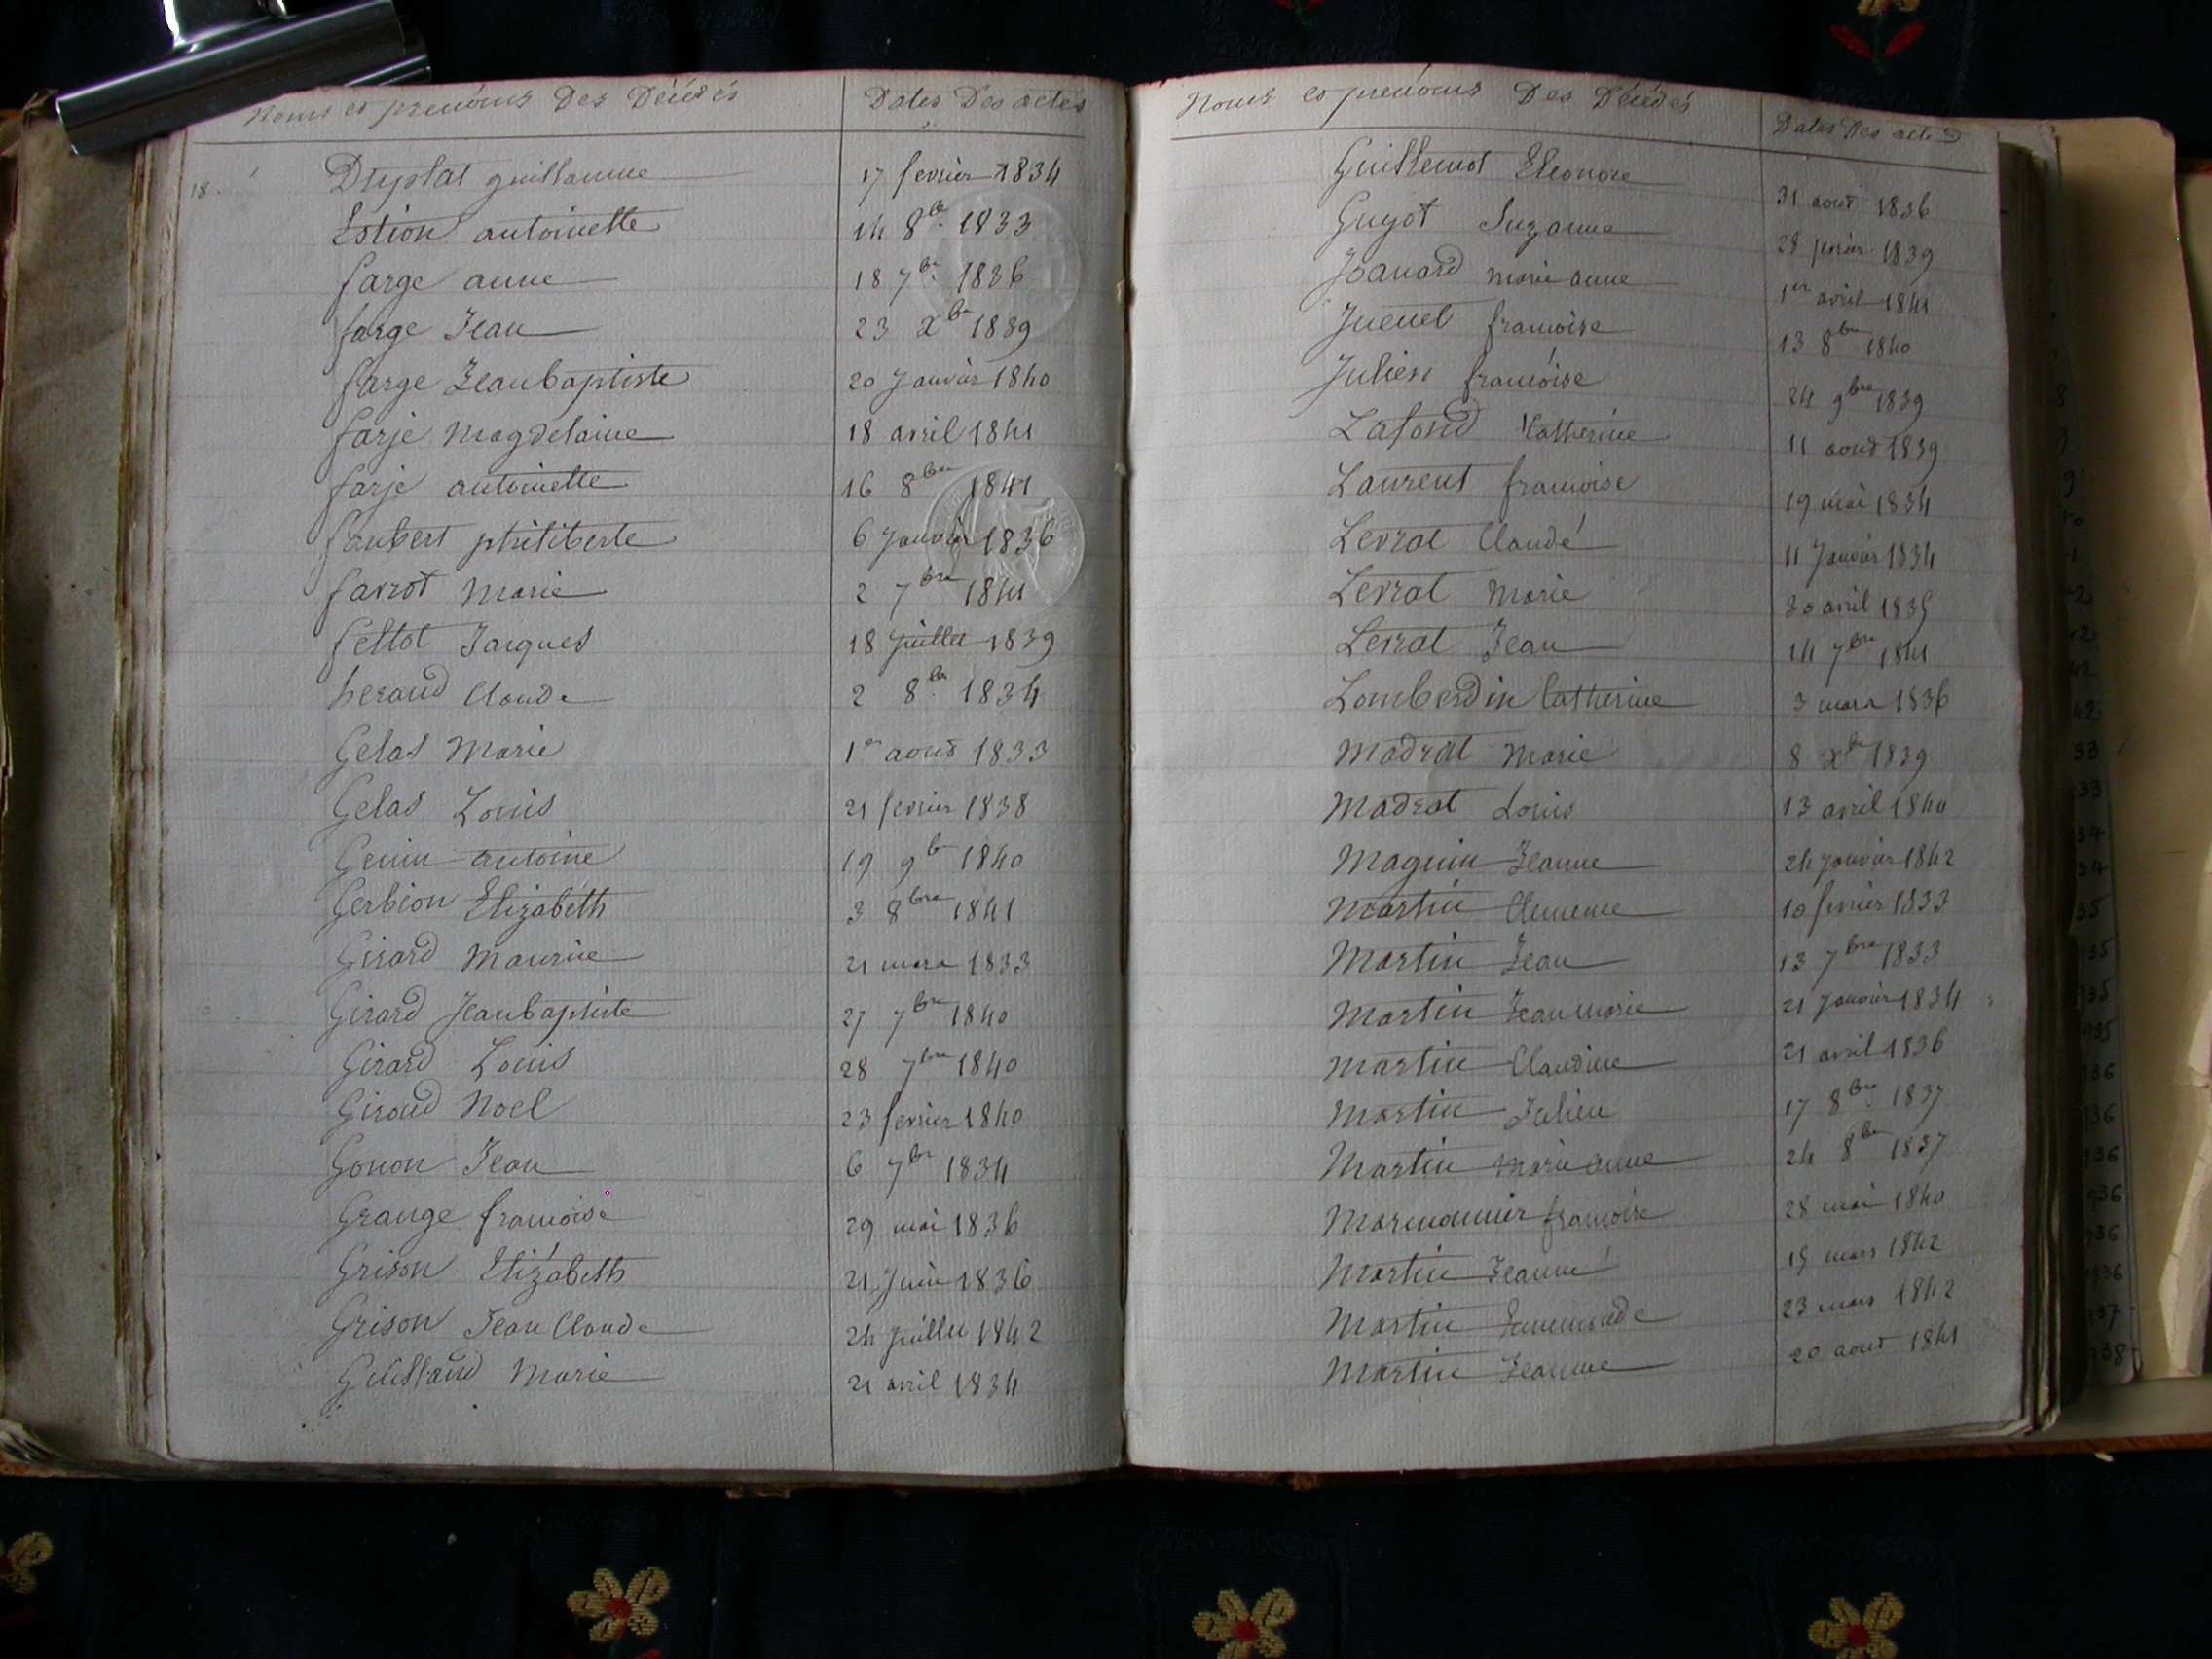 Noms et prénoms Des Décédés Dates Des actes
18.
Duplat guillaume 17 fevrier 1834
Estion antoinette 14 8bre 1833
farge anne 18 7bre 1836
farge Jean 23 Xbre 1839
farge Jeanbaptiste 20 Janvier 1840
farje Magdelaine 18 avril 1841
farje antoinette 16 8bre 1841
faubert philiberte 6 Janvier 1836
favrot Marie 2 7bre 1841
feltot Jacques 18 Juillet 1839
feraud Claude 2 8bre 1834
Gelas Marie 1er aout 1833
Gelas Louis 21 fevrier 1838
Genin antoine 19 9bre 1840
Gerbion Elizabeth 3 8bre 1841
Girard Maurice 21 mars 1833
Girard Jeanbaptiste 27 7bre 1840
Girard Louis 28 7bre 1840
Giroud Noel 23 fevrier 1840
Gonon Jean 6 7bre 1834
Grange francoise 29 mai 1836
Grison Elizabeth 21 Juin 1836
Grison Jean Claude 24 Juillet 1842
Marie 21 avril 1834
Noms et prénoms Des Décédés Dates Des actes
Guillemot Eleonore 31 aout 1836
Guyot Suzanne 28 fevrier 1839
Joanard Marie anne 1er avril 1841
Juenet francoise 13 8bre 1840
Julien francoise 24 9bre 1839
Lafond Catherine 11 aout 1839
Laurent francoise 19 mai 1834
Levrat Claude 11 Janvier 1834
Levrat Marie 30 avril 1835
Levrat Jean 14 7bre 1841
Lomberdin Catherine 3 mars 1836
Madrat Marie 8 Xbre 1839
Madrat Louis 13 avril 1840
Maguin Jeanne 24 Janvier 1842
Martin Clemence 10 fevrier 1833
Martin Jean 13 7bre 1833
Martin Jeanmarie 21 Janvier 1834
Martin Claudine 21 avril 1836
Martin Julien 17 8bre 1837
Martin Marie anne 24 8bre 1837
Marmonnier francoise 28 mai 1840
Martin Jeanne 19 mars 1842
Martin 23 mars 1842
Martin Jeanne 20 aout 1841